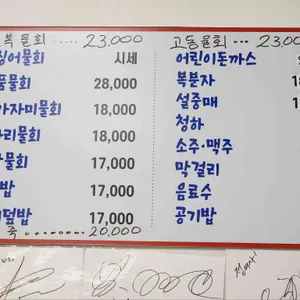 복물회 23.000
고동물회 23,00
물회 시세
물회 28,000
가자미물회 18,000
리물회 18,000
물회 17,000
밥 17,000
덮밥 17,000
죽 20,000
어린이돈까스
복분자
설중매
청하
소주·맥주
막걸리
음료수
공기밥